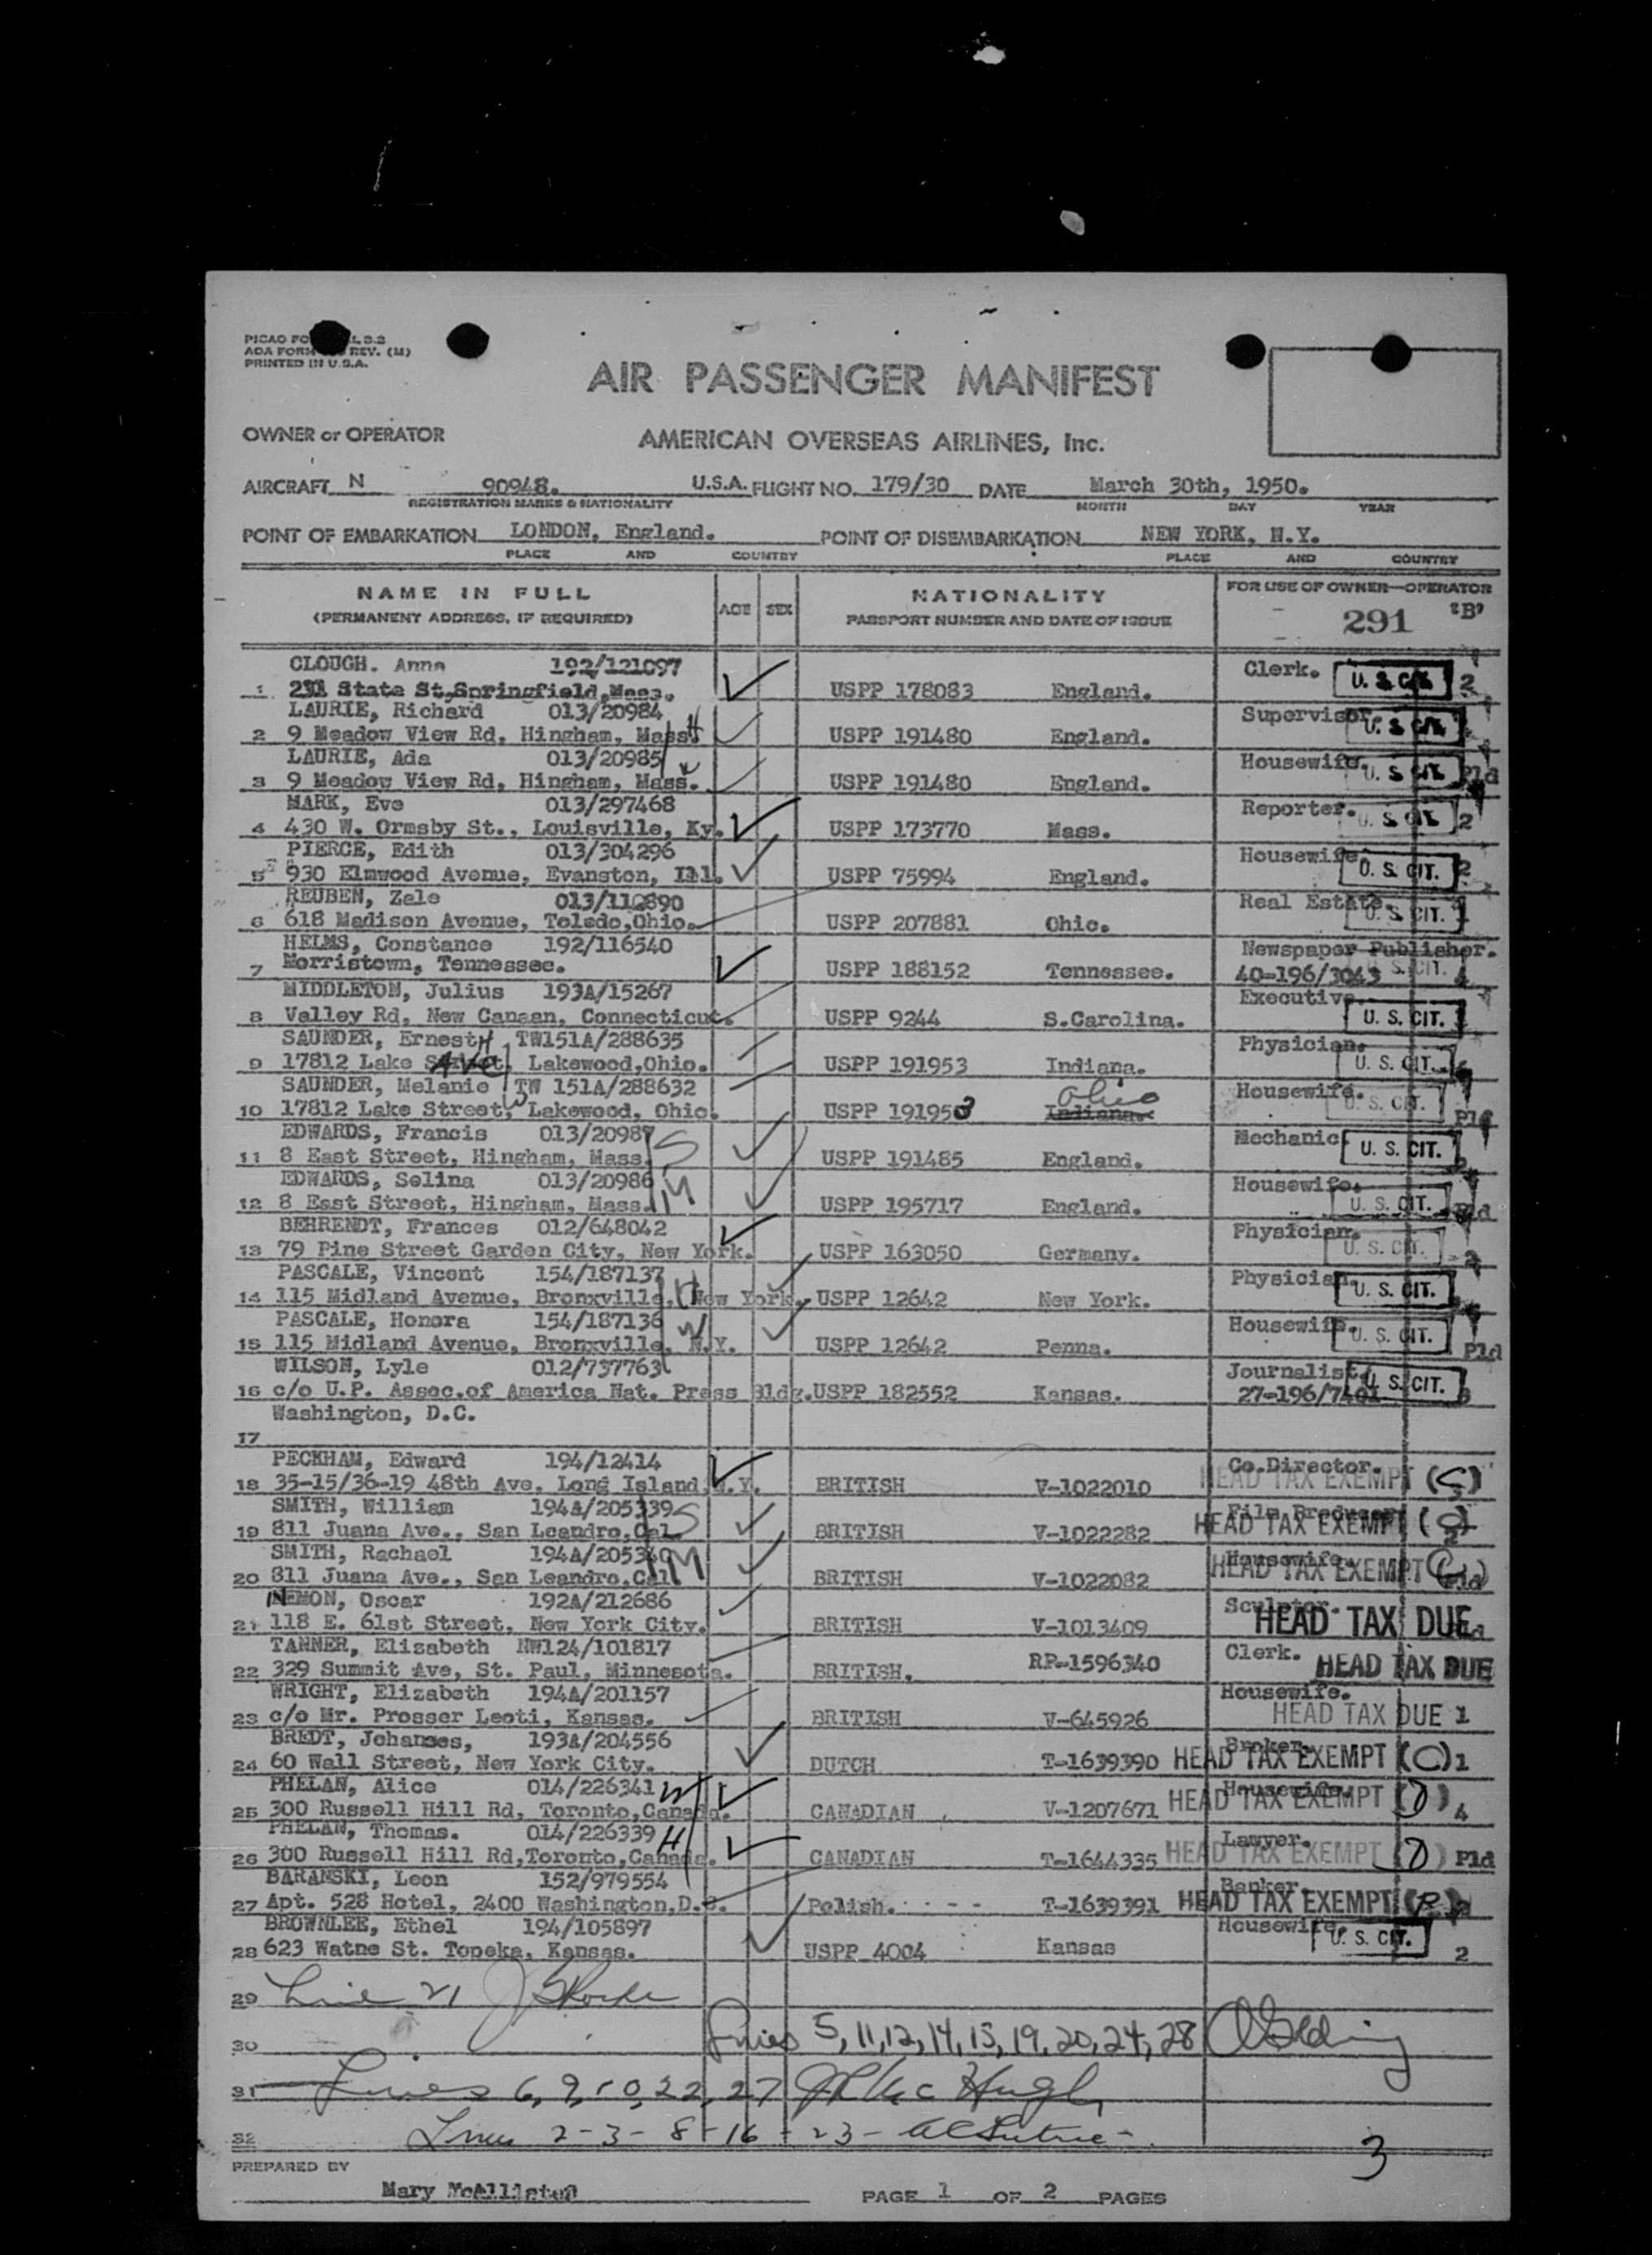 PICAO FO
AOA FORM REV. (M)
PRINTED IN U.S.A.
AIR PASSENGER MANIFEST
OWNER or OPERATOR AMERICAN OVERSEAS AIRLINES, Inc.
AIRCRAFT N 90948. U.S.A. FLIGHT NO. 179/30 DATE March 30th, 1950.
REGISTRATION MARKS & NATIONALITY MONTH DAY YEAR
POINT OF EMBARKATION LONDON, England. POINT OF DISEMBARKATION NEW YORK, N.Y.
PLACE AND COUNTRY PLACE AND COUNTRY
NAME IN FULL AGE SEX NATIONALITY FOR USE OF OWNER—OPERATOR
(PERMANENT ADDRESS, IF REQUIRED) PASSPORT NUMBER AND DATE OF ISSUE 291 "B"
CLOUGH. Anna 192/121097 Clerk. U. S. CIT. 2
1 State St, Springfield, Mass. USPP 178083 England.
LAURIE, Richard 013/20984 H Supervisor. U. S. CIT.
2 9 Meadow View Rd, Hingham, Mass. USPP 191480 England.
LAURIE, Ada 013/20985 W Housewife. U. S. CIT. Pld
3 9 Meadow View Rd, Hingham, Mass. USPP 191480 England.
MARK, Eve 013/297468 Reporter. U. S. CIT. 2
4 430 W. Ormsby St., Louisville, Ky. USPP 173770 Mass.
PIERCE, Edith 013/304296 Housewife. U. S. CIT. 2
5 930 Elmwood Avenue, Evanston, Ill. USPP 75994 England.
REUBEN, Zale 013/110890 Real Estate. U. S. CIT.
6 618 Madison Avenue, Toledo, Ohio. USPP 207881 Ohio.
HELMS, Constance 192/116540 Newspaper Publisher.
7 Morristown, Tennessee. USPP 188152 Tennessee. 40-196/3043 S. CIT.
MIDDLETON, Julius 193A/15267 Executive.
8 Valley Rd, New Canaan, Connecticut. USPP 9244 S.Carolina. U. S. CIT.
SAUNDER, Ernest H TW151A/288635 Physician.
9 17812 Lake Ave, Lakewood, Ohio. USPP 191953 Indiana. U. S. CIT.
SAUNDER, Melanie TW 151A/288632 Ohio Housewife. U. S. CIT.
10 17812 Lake Street, W Lakewood, Ohio. USPP 191953 Indiana. Pld
EDWARDS, Francis 013/20987 S Mechanic. U. S. CIT.
11 8 East Street, Hingham, Mass. USPP 191485 England.
EDWARDS, Selina 013/20986 M Housewife. U. S. CIT.
12 8 East Street, Hingham, Mass. USPP 195717 England. Pld
BEHRENDT, Frances 012/648042 Physician. U. S. CIT.
13 79 Pine Street Garden City, New York. USPP 163050 Germany. 2
PASCALE, Vincent 154/187137 H Physician. U. S. CIT.
14 115 Midland Avenue, Bronxville, New York. USPP 12642 New York.
PASCALE, Honora 154/187136 W Housewife. U. S. CIT.
15 115 Midland Avenue, Bronxville, N.Y. USPP 12642 Penna. Pld
WILSON, Lyle 012/737763 Journalist. U. S. CIT.
16 c/o U.P. Assoc.of America Nat. Press Bldg. USPP 182552 Kansas. 27-196/7401
Washington, D.C.
17
PECKHAM, Edward 194/12414 Co.Director.
18 35-15/36-19 48th Ave, Long Island, N.Y. BRITISH V-1022010 HEAD TAX EXEMPT (C)
SMITH, William 194A/205339 S Film Producer
19 811 Juana Ave., San Leandro, Cal. BRITISH V-1022282 HEAD TAX EXEMPT (C) 2
SMITH, Rachael 194A/205340 M Housewife.
20 811 Juana Ave., San Leandro, Cal. BRITISH V-1022082 HEAD TAX EXEMPT (C) Pld
NEMON, Oscar 192A/212686 Sculptor.
21 118 E. 61st Street, New York City. BRITISH V-1013409 HEAD TAX DUE
TANNER, Elizabeth NW124/101817 Clerk.
22 329 Summit Ave, St. Paul, Minnesota. BRITISH. RP-1596340 HEAD TAX DUE
WRIGHT, Elizabeth 194A/201157 Housewife.
23 c/o Mr. Prosser Leoti, Kansas. BRITISH V-645926 HEAD TAX DUE 1
BREDT, Johanses, 193A/204556 Broker.
24 60 Wall Street, New York City. DUTCH T-1639390 HEAD TAX EXEMPT (C) 1
PHELAN, Alice 014/226341 W Housewife.
25 300 Russell Hill Rd, Toronto, Canada. CANADIAN V-1207671 HEAD TAX EXEMPT (D) 4
PHELAN, Thomas. 014/226339 H Lawyer.
26 300 Russell Hill Rd, Toronto, Canada. CANADIAN T-1644335 HEAD TAX EXEMPT (D) Pld
BARANSKI, Leon 152/979554 Banker.
27 Apt. 528 Hotel, 2400 Washington, D.C. Polish. T-1639391 HEAD TAX EXEMPT (R)
BROWNLEE, Ethel 194/105897 Housewife. U. S. CIT.
28 623 Watne St. Topeka, Kansas. USPP 4004 Kansas 2
29 Line 21
30 Lines 5, 11, 12, 14, 15, 19, 20, 24, 28
31 Lines 6, 9, 10, 22, 27
32 Lines 2-3-8-16-23-
3
PREPARED BY
Mary McAllister PAGE 1 OF 2 PAGES